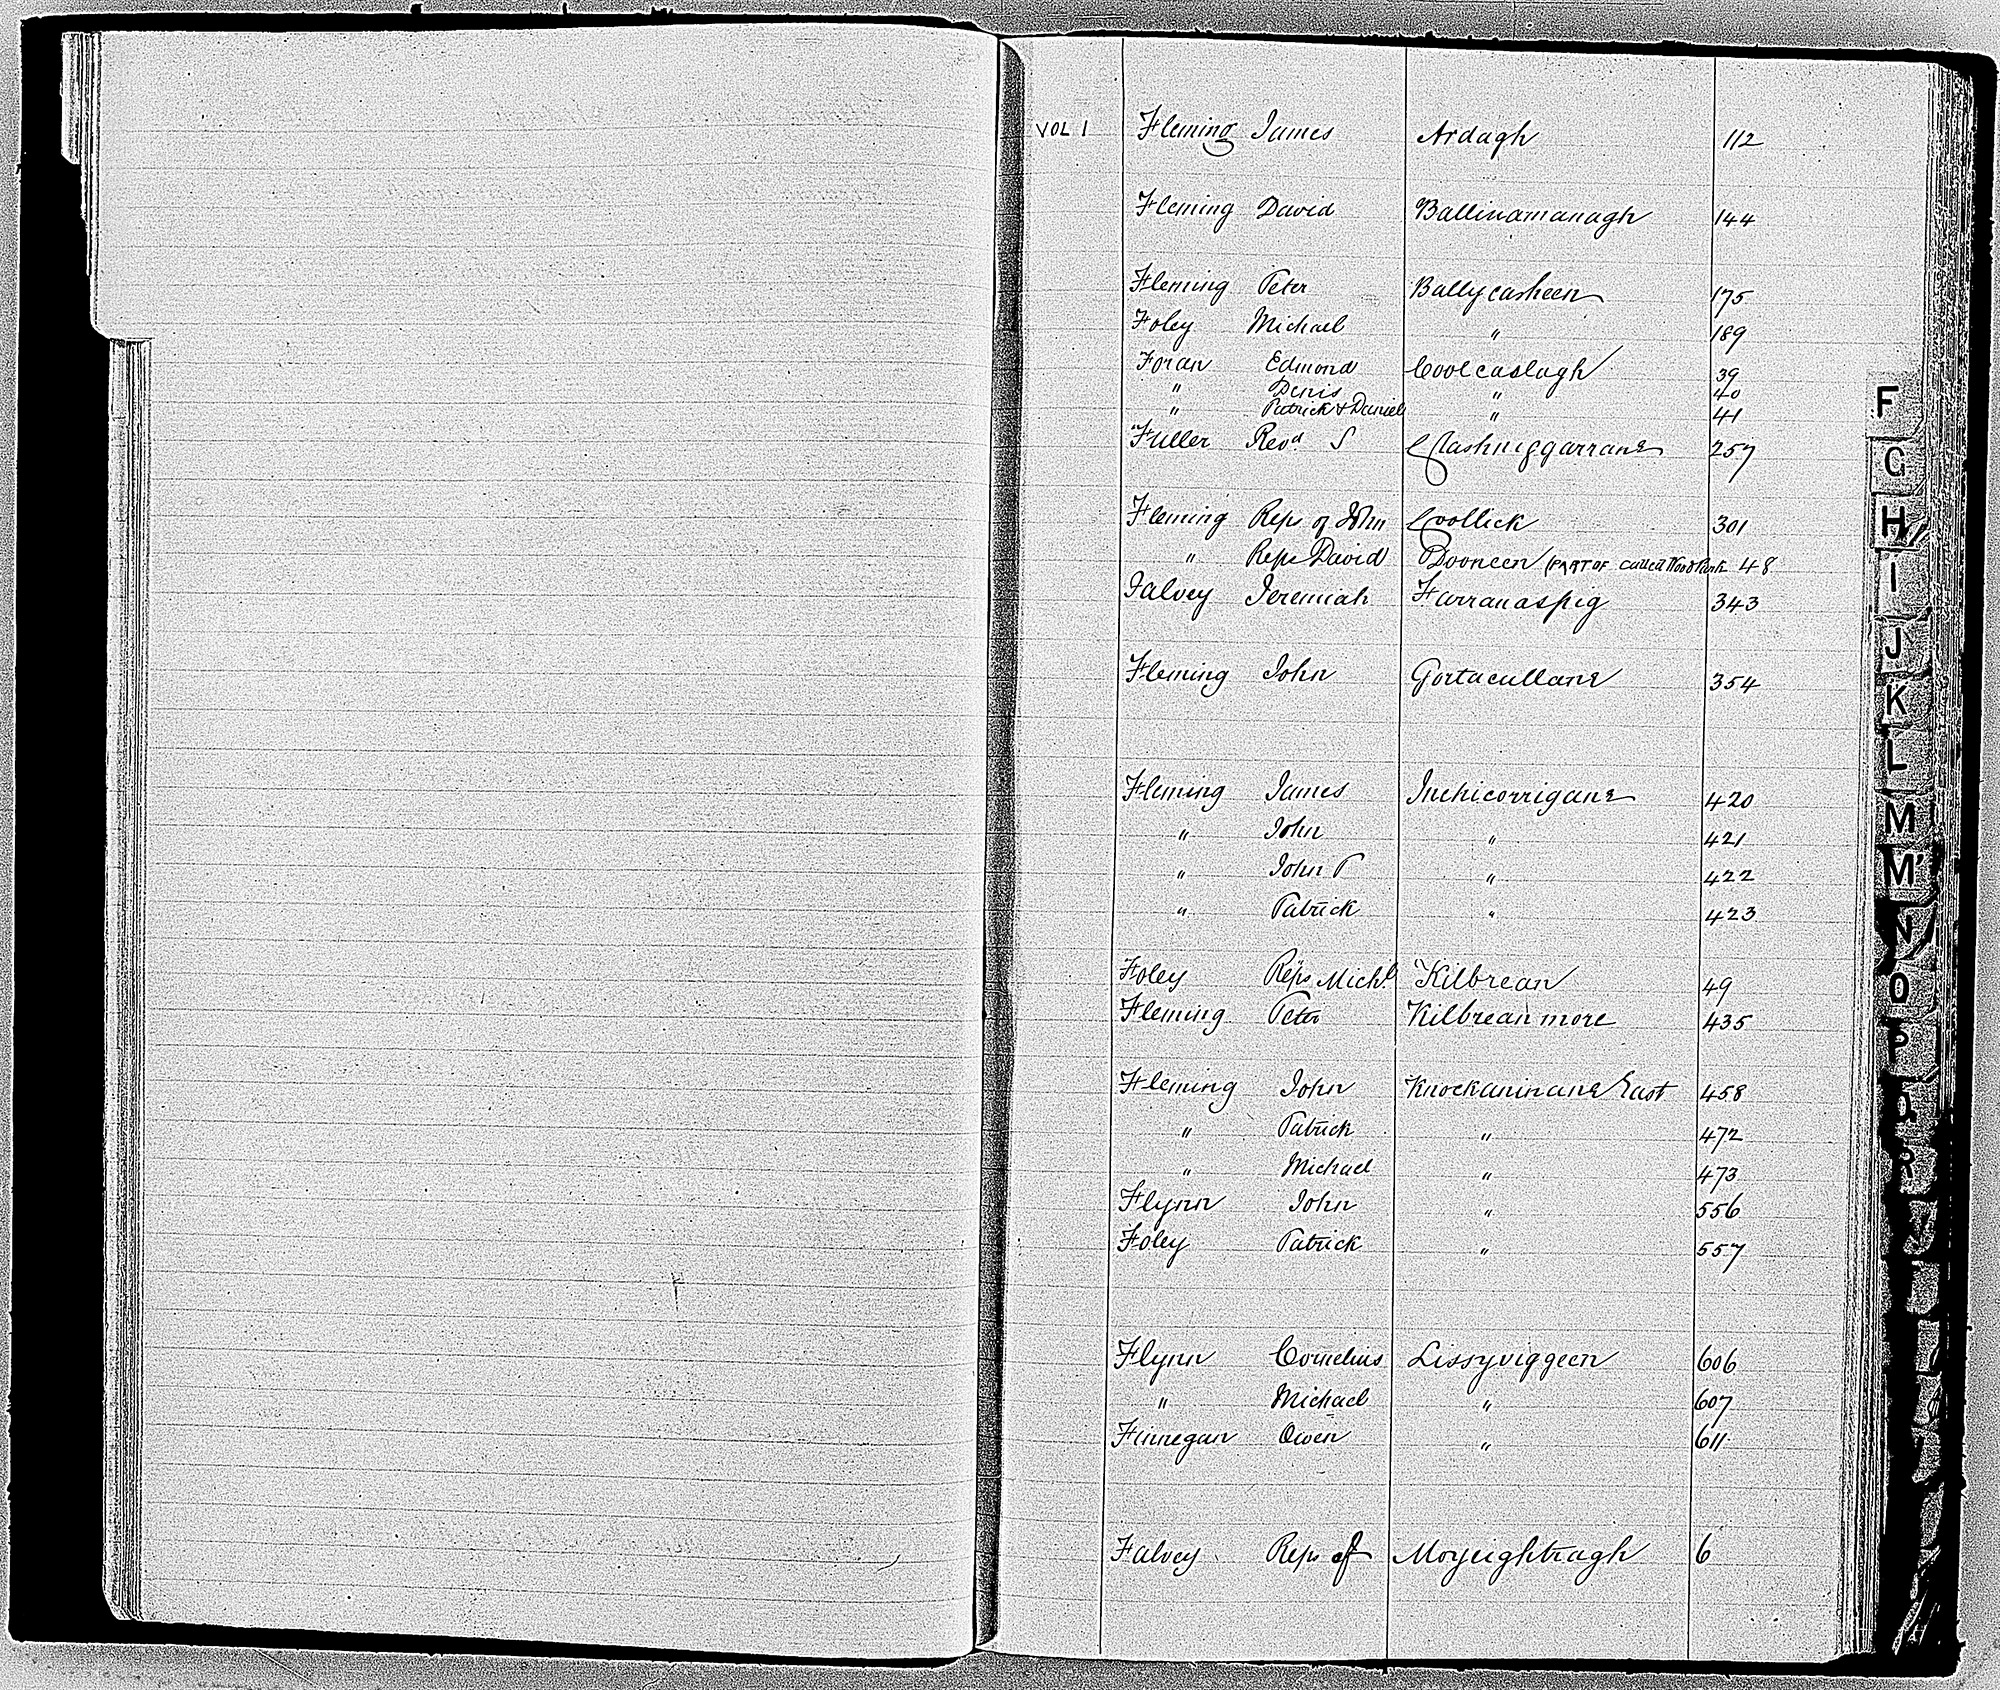 VOL 1 Fleming James Ardagh 112
Fleming David Ballinamanagh 144
Fleming Peter Ballycasheen 175
Foley Michael " 189
Foran Edmond Coolcaslagh 39
" Denis " 40
" Patrick & Daniel " 41
Fuller Revd. S Clashnaggarrane 257
Fleming Reps of John Coollick 301
" Reps David Dooneen (PART OF called Wood Park 48
Falvey Jeremiah Farranaspig 343
Fleming John Gortacullane 354
Fleming James Inchicorrigane 420
" John " 421
" John P " 422
" Patrick " 423
Foley Reps Michl. Kilbrean 49
Fleming Peter Kilbrean more 435
Fleming John Knockaninane East 458
" Patrick " 472
" Michael " 473
Flynn John " 556
Foley Patrick " 557
Flynn Cornelius Lissyviggeen 606
" Michael " 607
Finnegan Owen " 611
Falvey Reps of Moyeightragh 6
F
G
H
I
J
K
L
M
M'
N
O
P
Q
R